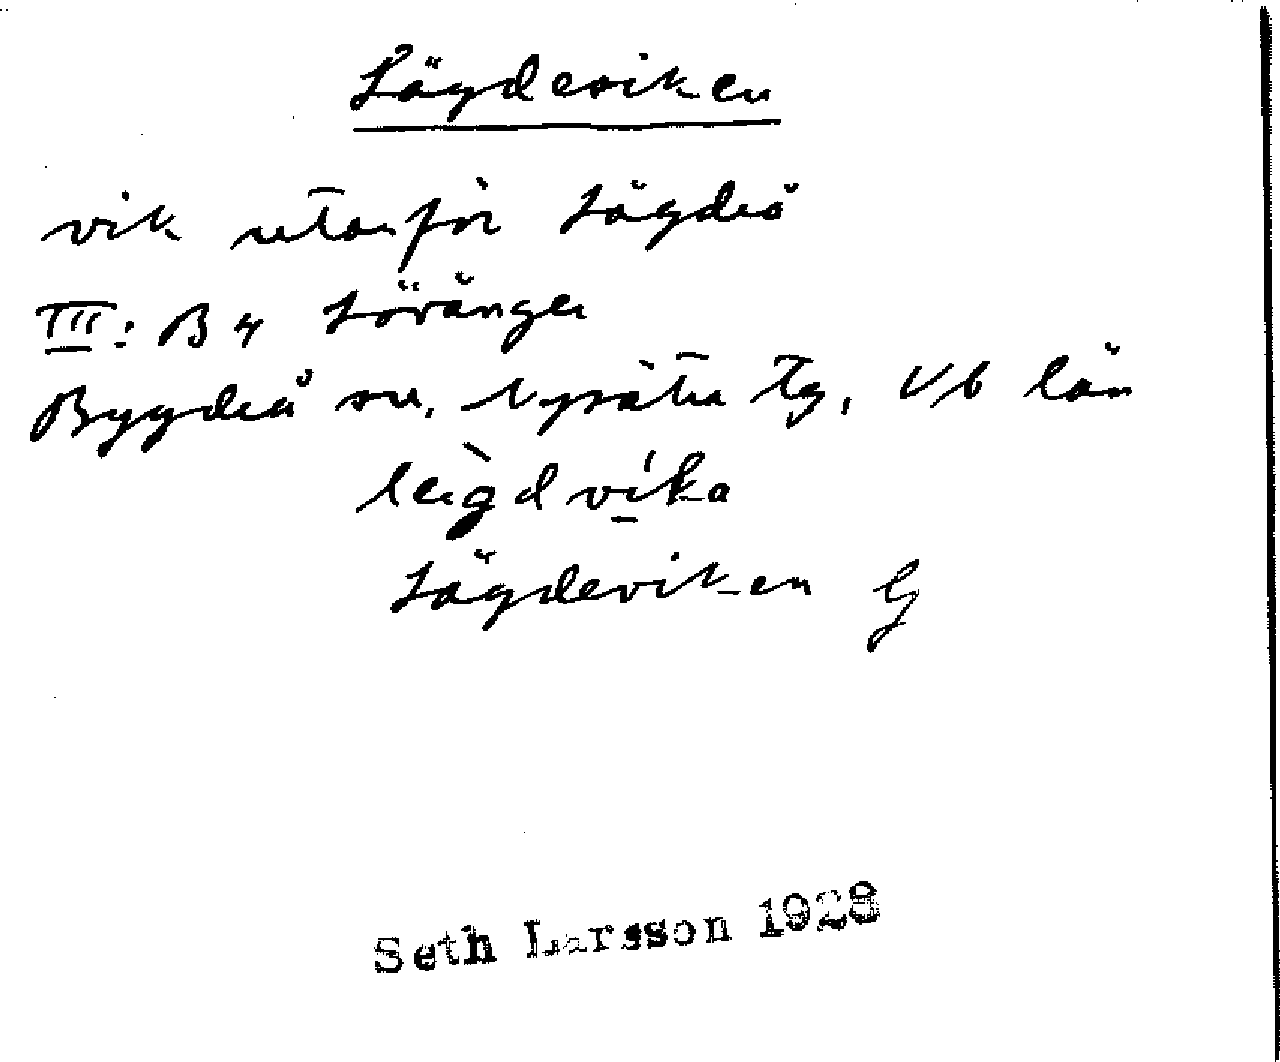 Lägdeviken
vik utanför Lägdeå
III: B 4 Lövånger
Bygdeå sn, Nysätra tg, Vb län
leigdvika
Lägdeviken G
Seth Larsson 1928